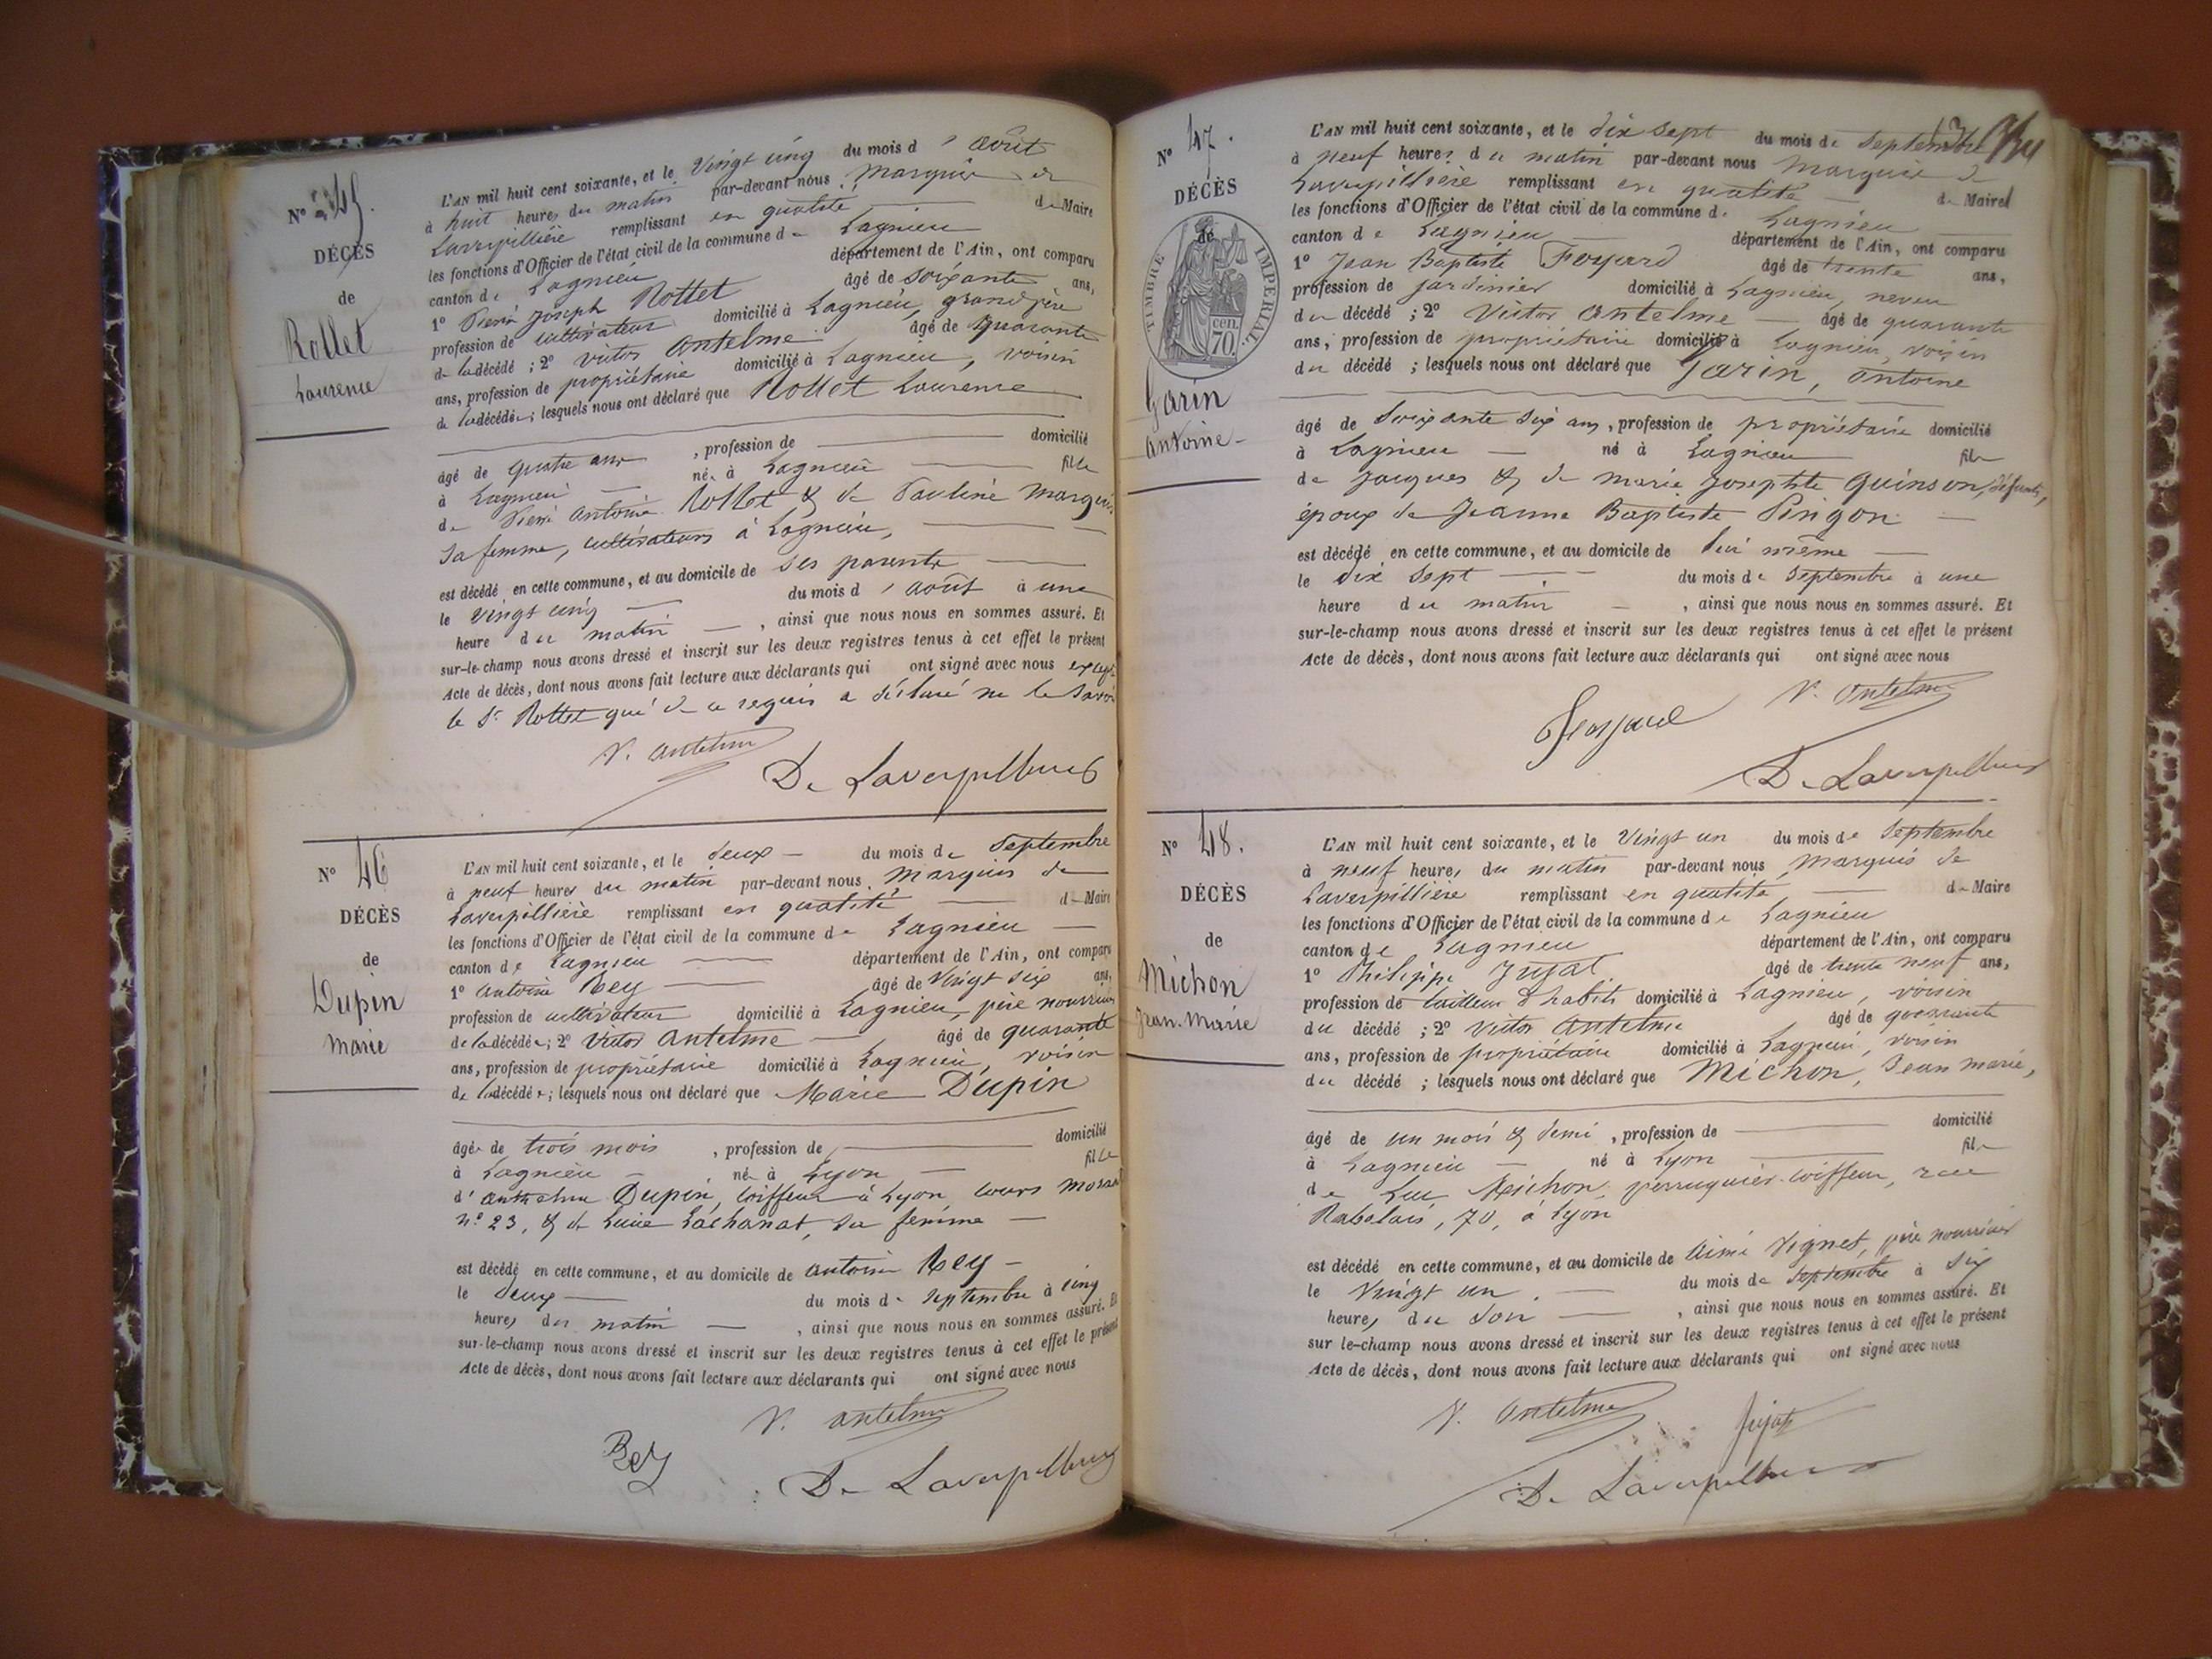 N° 45.
DÉCÈS
de
Rollet
Laurence
L'AN mil huit cent soixante, et le Vingt cinq du mois d' août
à huit heures du matin par-devant nous Marquis de
Laverpillière remplissant en qualité de Maire
les fonctions d'Officier de l'état civil de la commune de Lagnieu
canton de Lagnieu département de l'Ain, ont comparu
1° Pierre Joseph Rollet âgé de soixante ans,
profession de cultivateur domicilié à Lagnieu, grand père
de la décédée ; 2° Victor Antelme âgé de quarante
ans, profession de propriétaire domicilié à Lagnieu, voisin
de la décédée ; lesquels nous ont déclaré que Rollet Laurence
âgé de quatre ans , profession de domicilié
à Lagnieu née à Lagnieu fille
de Pierre Antoine Rollet & de Pauline Marquis
sa femme, cultivateurs à Lagnieu,
est décédé en cette commune, et au domicile de ses parents
le vingt cinq du mois d' août à une
heure du matin , ainsi que nous nous en sommes assuré. Et
sur-le-champ nous avons dressé et inscrit sur les deux registres tenus à cet effet le présent
Acte de décès, dont nous avons fait lecture aux déclarants qui ont signé avec nous excepté
le Sr Rollet qui de ce requis a déclaré ne le savoir
V. Antelme
De Laverpilliere
N° 46
DÉCÈS
de
Dupin
Marie
L'AN mil huit cent soixante, et le deux du mois de Septembre
à neuf heures du matin par-devant nous Marquis de
Laverpillière remplissant en qualité de Maire
les fonctions d'Officier de l'état civil de la commune de Lagnieu
canton de Lagnieu département de l'Ain, ont comparu
1° Antoine Rey âgé de Vingt six ans,
profession de cultivateur domicilié à Lagnieu, père nourricier
de la décédée ; 2° Victor Antelme âgé de quarante
ans, profession de propriétaire domicilié à Lagnieu, voisin
de la décédée ; lesquels nous ont déclaré que Marie Dupin
âgée de trois mois , profession de domicilié
à Lagnieu née à Lyon fille
d' Dupin, coiffeur à Lyon cours Morand
n° 23, & de Lachanat, sa femme
est décédé en cette commune, et au domicile de Antoine Rey
le deux du mois de septembre à cinq
heures du matin , ainsi que nous nous en sommes assuré. Et
sur-le-champ nous avons dressé et inscrit sur les deux registres tenus à cet effet le présent
Acte de décès, dont nous avons fait lecture aux déclarants qui ont signé avec nous
V. Antelme
Rey
De Laverpilliere
N° 47.
DÉCÈS
de
TIMBRE IMPERIAL
cen.
70
Garin
Antoine
L'AN mil huit cent soixante, et le dix sept du mois de septembre
à neuf heures du matin par-devant nous Marquis de
Laverpillière remplissant en qualité de Maire
les fonctions d'Officier de l'état civil de la commune de Lagnieu
canton de Lagnieu département de l'Ain, ont comparu
1° Jean Baptiste Foyard âgé de trente ans,
profession de jardinier domicilié à Lagnieu, neveu
du décédé ; 2° Victor Antelme âgé de quarante
ans, profession de propriétaire domicilié à Lagnieu, voisin
du décédé ; lesquels nous ont déclaré que Garin, Antoine
âgé de Soixante six ans , profession de propriétaire domicilié
à Lagnieu né à Lagnieu fils
de Jacques & de Marie Josephte Guinson, défunts,
époux de Jeanne Baptiste Pingon
est décédé en cette commune, et au domicile de lui même
le dix sept du mois de Septembre à une
heure du matin , ainsi que nous nous en sommes assuré. Et
sur-le-champ nous avons dressé et inscrit sur les deux registres tenus à cet effet le présent
Acte de décès, dont nous avons fait lecture aux déclarants qui ont signé avec nous
V. Antelme
De Laverpilliere
N° 48.
DÉCÈS
de
Michon
Jean-Marie
L'AN mil huit cent soixante, et le Vingt un du mois de Septembre
à neuf heures du matin par-devant nous Marquis de
Laverpillière remplissant en qualité de Maire
les fonctions d'Officier de l'état civil de la commune de Lagnieu
canton de Lagnieu département de l'Ain, ont comparu
1° Philippe Jujat âgé de trente neuf ans,
profession de tailleur d'habits domicilié à Lagnieu, voisin
du décédé ; 2° Victor Antelme âgé de quarante
ans, profession de propriétaire domicilié à Lagnieu, voisin
du décédé ; lesquels nous ont déclaré que Michon, Jean Marie,
âgé de un mois & demi , profession de domicilié
à Lagnieu né à Lyon fils
de Luc Michon, perruquier-coiffeur, rue
Rabelais, 70, à Lyon
est décédé en cette commune, et au domicile de Aimé Vignet, père nourricier
le Vingt un du mois de Septembre à six
heures du soir , ainsi que nous nous en sommes assuré. Et
sur le-champ nous avons dressé et inscrit sur les deux registres tenus à cet effet le présent
Acte de décès, dont nous avons fait lecture aux déclarants qui ont signé avec nous
V. Antelme
Jujat
De Laverpilliere